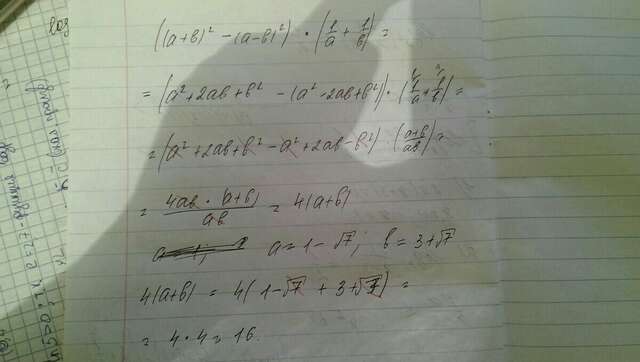 ((a+b)² - (a-b)²) · (1/a + 1/b) =
= (a² + 2ab + b² - (a² - 2ab + b²)) · (1/a + 1/b) =
= (a² + 2ab + b² - a² + 2ab - b²) · (a+b/ab) =
= 4ab · (a+b)/ab = 4(a+b)
a = 1 - √7; b = 3 + √7
4(a+b) = 4(1 - √7 + 3 + √7) =
= 4 · 4 = 16.